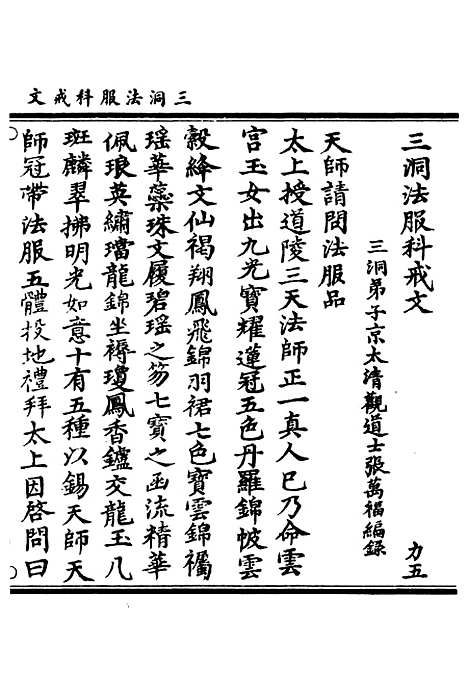 三洞法服科戒文
三洞法服科戒文 力五
三洞弟子京太清觀道士張萬福編錄
天師請問法服品
太上授道陵三天法師正一真人已乃命雲
宮玉女出九光寶耀蓮冠五色丹羅錦帔雲
縠絳文仙褐翔鳳飛錦羽裙七色寶雲錦襡
瑤華蘂珠文履碧瑶之笏七寶之函流精華
佩琅英繡璫龍錦坐褥瓊鳳香鑪交龍玉几
斑麟翠拂明光如意十有五種以錫天師天
師冠帶法服五體投地禮拜太上因啓問曰